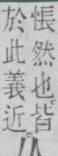 悵然也。皆
於此義近